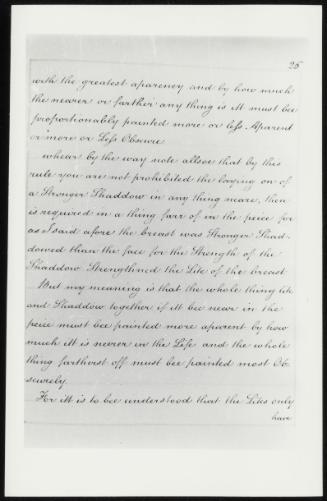 25
with the greatest aparency and by how much
the nearer or farther any thing is itt must bee
proportionably painted more or less Aparent
or more or Less Obscure
whear by the way note allsoe that by this
rule you are not prohibited the laying on of
a Stronger Shaddow in any thing neare, then
is required in a thing farr of in the peice for
as I said afore the breast was Stronger Shad-
dowed than the face for the Strength of the
Shaddow Strengthned the Lite of the breast
But my meaning is that the whole thing lite
and Shaddow together if itt bee near in the
peice must bee painted more aparent by how
much itt is nearer in the Life and the whole
thing farthest off must bee painted most Ob
scurely.
For itt is to bee understood that the Lites only
have